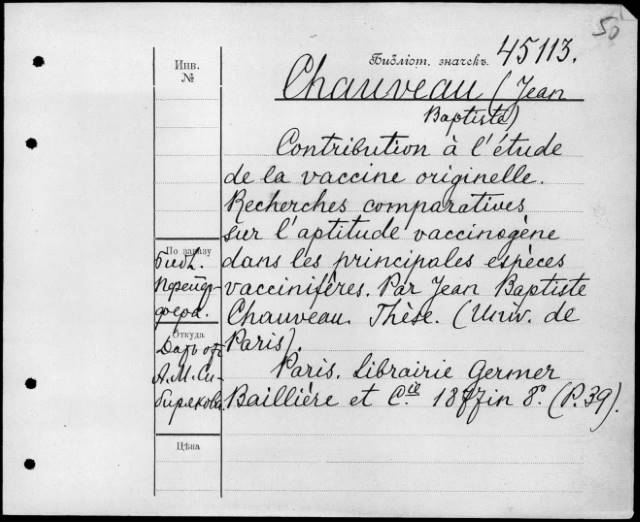 50
Библіот. значекъ 45113.
Инв.
№
Chauveau (Jean
Baptiste)
Contribution à l'étude
de la vaccine originelle.
Recherches comparatives
sur l'aptitude vaccinogène
dans les principales espèces
vaccinifères. Par Jean Baptiste
Chauveau. Thèse. (Univ. de
Paris).
Paris. Librairie Germer
Baillière et C.ie 1877 in 8º. (P. 39).
По заказу
Библ.
Пфейф-
фера.
Откуда
Даръ отъ
А. М. Си-
бирякова.
Цѣна